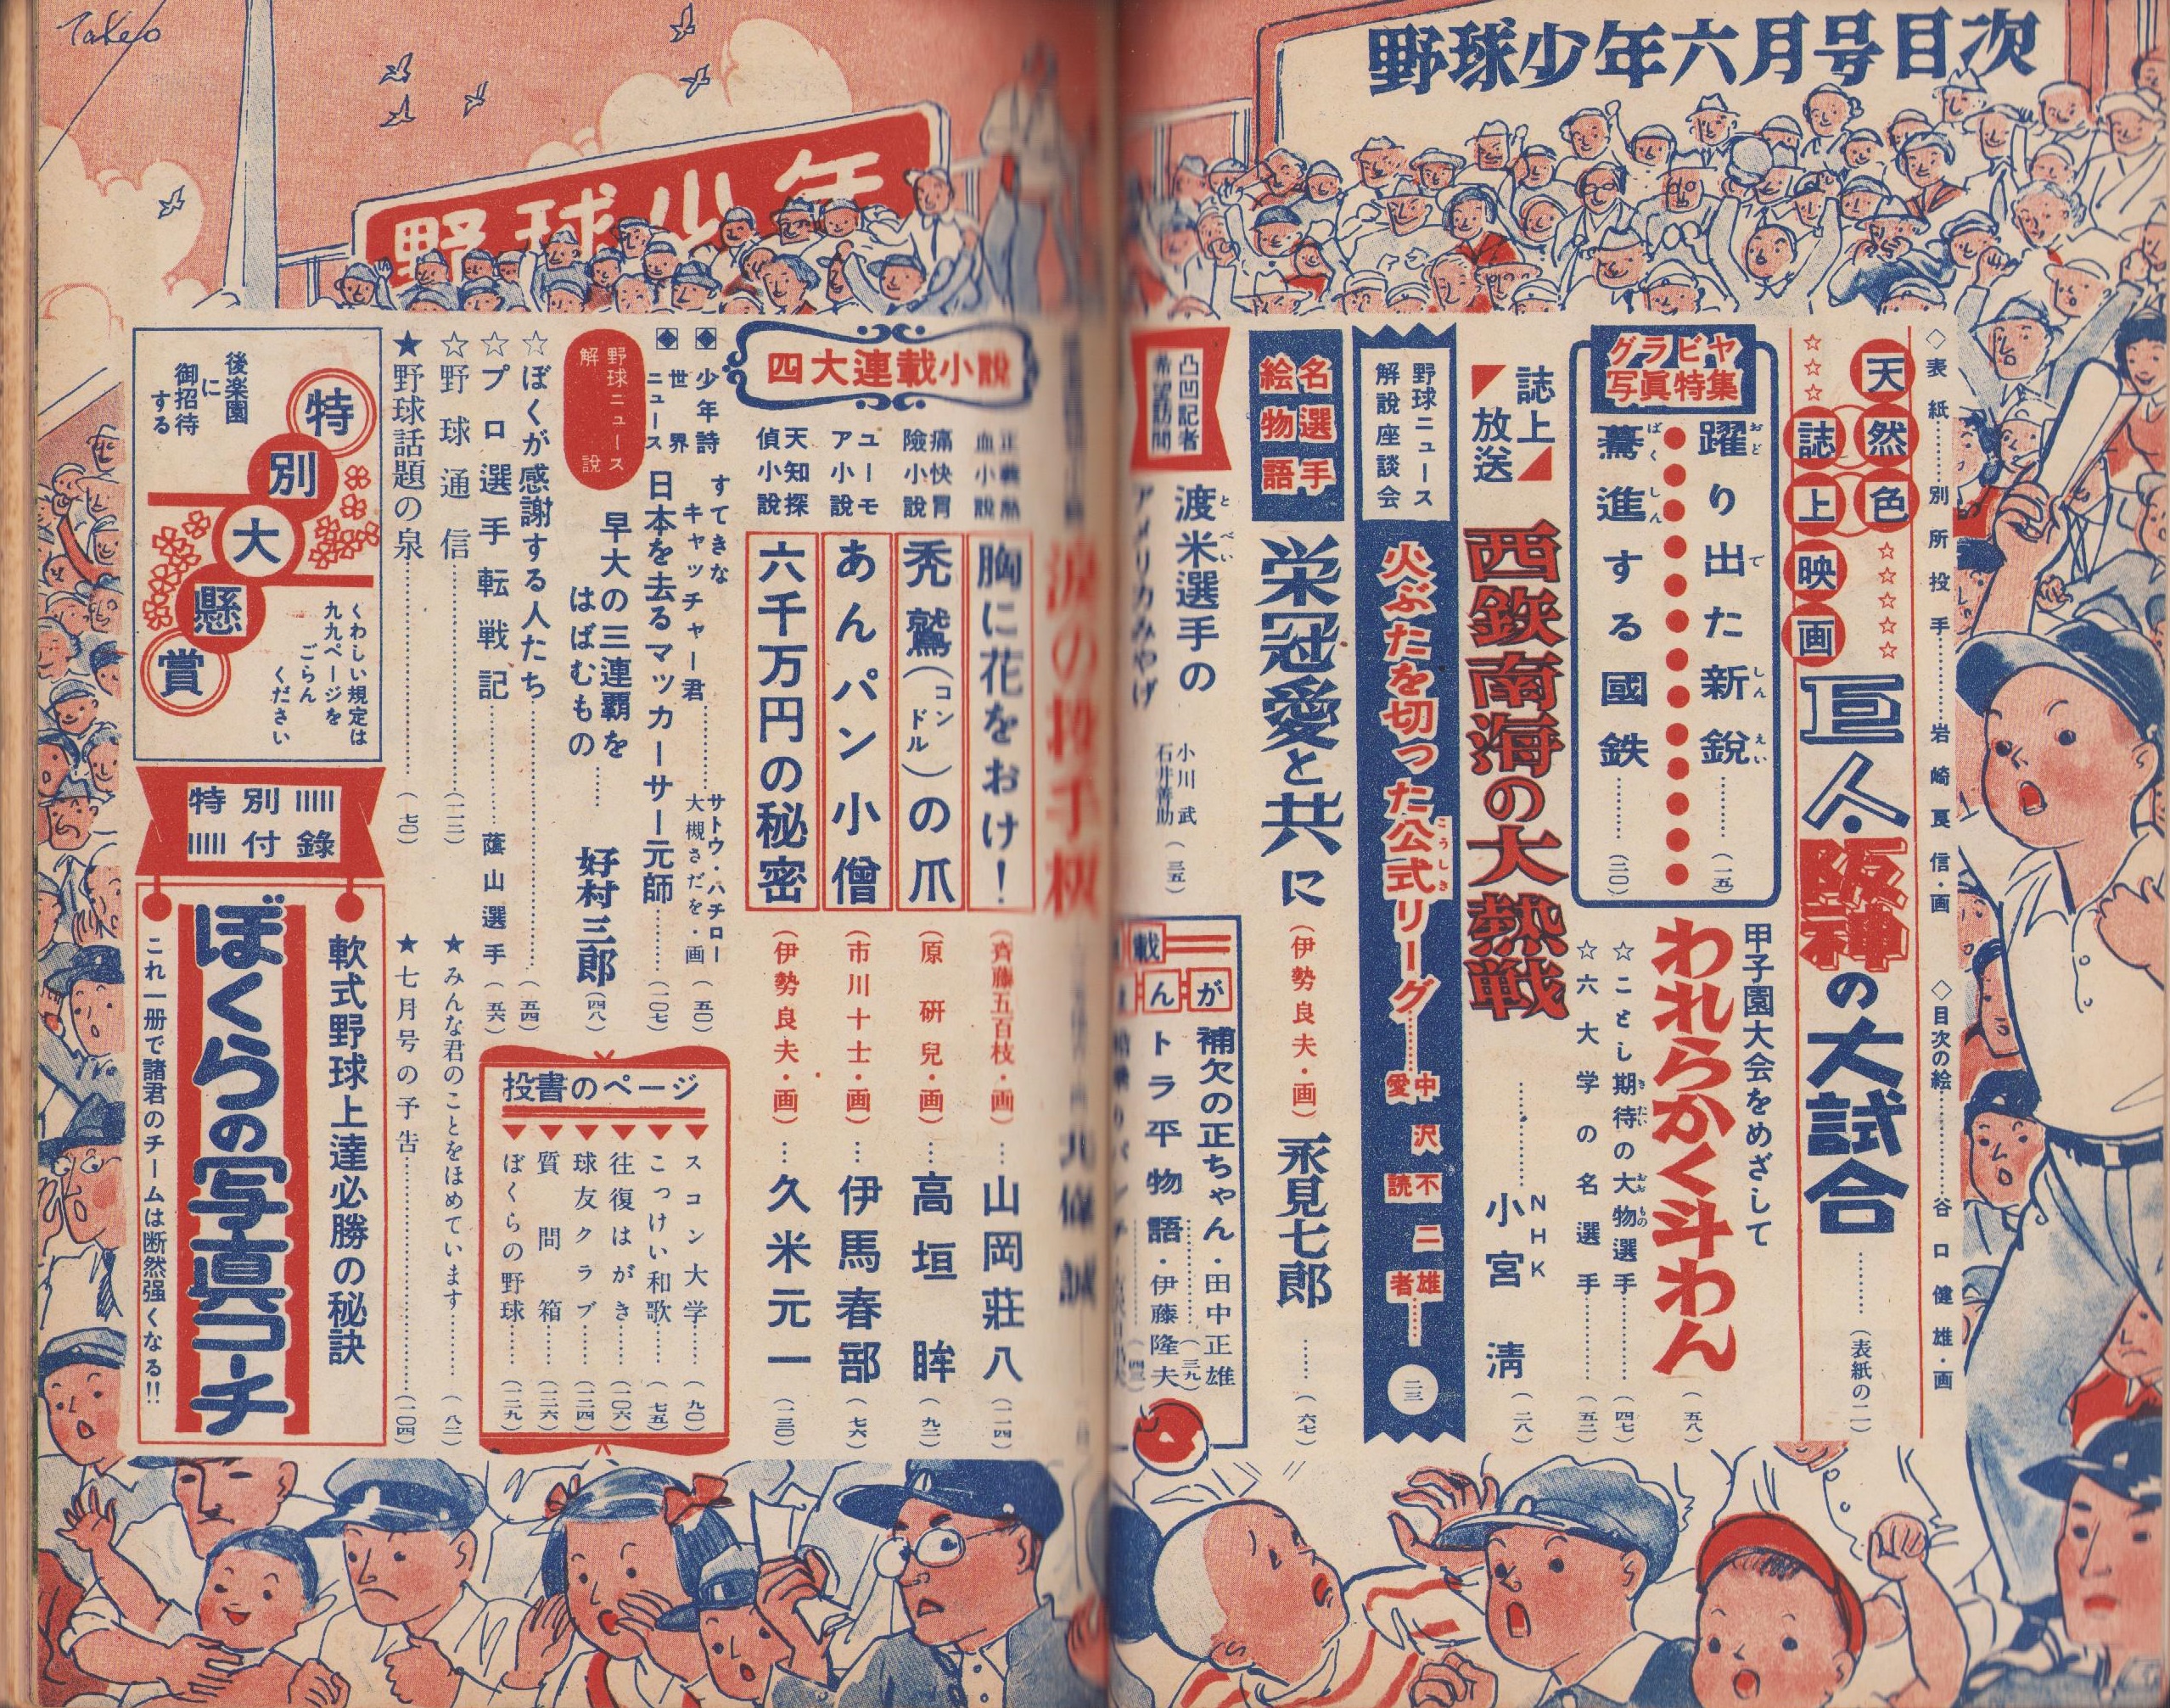 野球少年六月号目次
◇表紙………別所投手………岩崎良信・画
◇目次の絵………谷口健雄・画
天然色
☆☆☆☆☆
☆☆☆
誌上映画
巨人・阪神の大試合………(表紙の二)
甲子園大会をめざして
われらかく斗わん(五八)
☆ことし期待の大物選手………(四七)
☆六大学の名選手………(五二)
グラビヤ
写眞特集
躍り出た新鋭………(一五)
驀進する國鉄………(二〇)
誌上
放送
西鉄南海の大熱戦
………NHK
小宮 淸(二八)
野球ニュース
解説座談会
火ぶたを切った公式リーグ………
中沢不二雄
愛読者……(二三)
名選手
絵物語
栄冠愛と共に
(伊勢良夫・画)
永見七郎……(六七)
凸凹記者
希望訪問
渡米選手の
アメリカみやげ
小川武
石井善助
(三五)
補欠の正ちゃん・田中正雄……(三九)
トラ平物語・伊藤隆夫
野球少年
Takeo
四大連載小說
胸に花をおけ!(齊藤五百枝・画)…山岡荘八(一一四)
痛快冒
險小說
禿鷲(コンドル)の爪(原 研兒・画)…高垣 眸(九二)
ユーモ
ア小說
あんパン小僧(市川十士・画)…伊馬春部(七六)
天知探
偵小說
六千万円の秘密(伊勢良夫・画)…久米元一(一三〇)
◆少年詩
すてきな
キャッチャー君………サトウ・ハチロー
大槻さだを・画(五〇)
◆世界
ニュース
日本を去るマッカーサー元師………(一〇七)
野球ニュース
解 說
早大の三連覇を
はばむもの……好村三郎(四八)
☆ぼくが感謝する人たち………(五四)
☆プロ選手転戦記………蔭山選手(五六)
☆野球通信………(一一三)
★みんな君のことをほめています……(八二)
★野球話題の泉………(七〇)
★七月号の予告………(一〇四)
投書のページ
スコン大学……(九〇)
こっけい和歌……(七五)
往復はがき……(一〇六)
球友クラブ……(一二四)
質問箱……(一二六)
ぼくらの野球……(一二九)
特別大懸賞
後楽園
に
御招待
する
くわしい規定は
九九ページを
ごらん
ください
特別
付錄
軟式野球上達必勝の秘訣
ぼくらの写真コーチ
これ一册で諸君のチームは断然强くなる!!